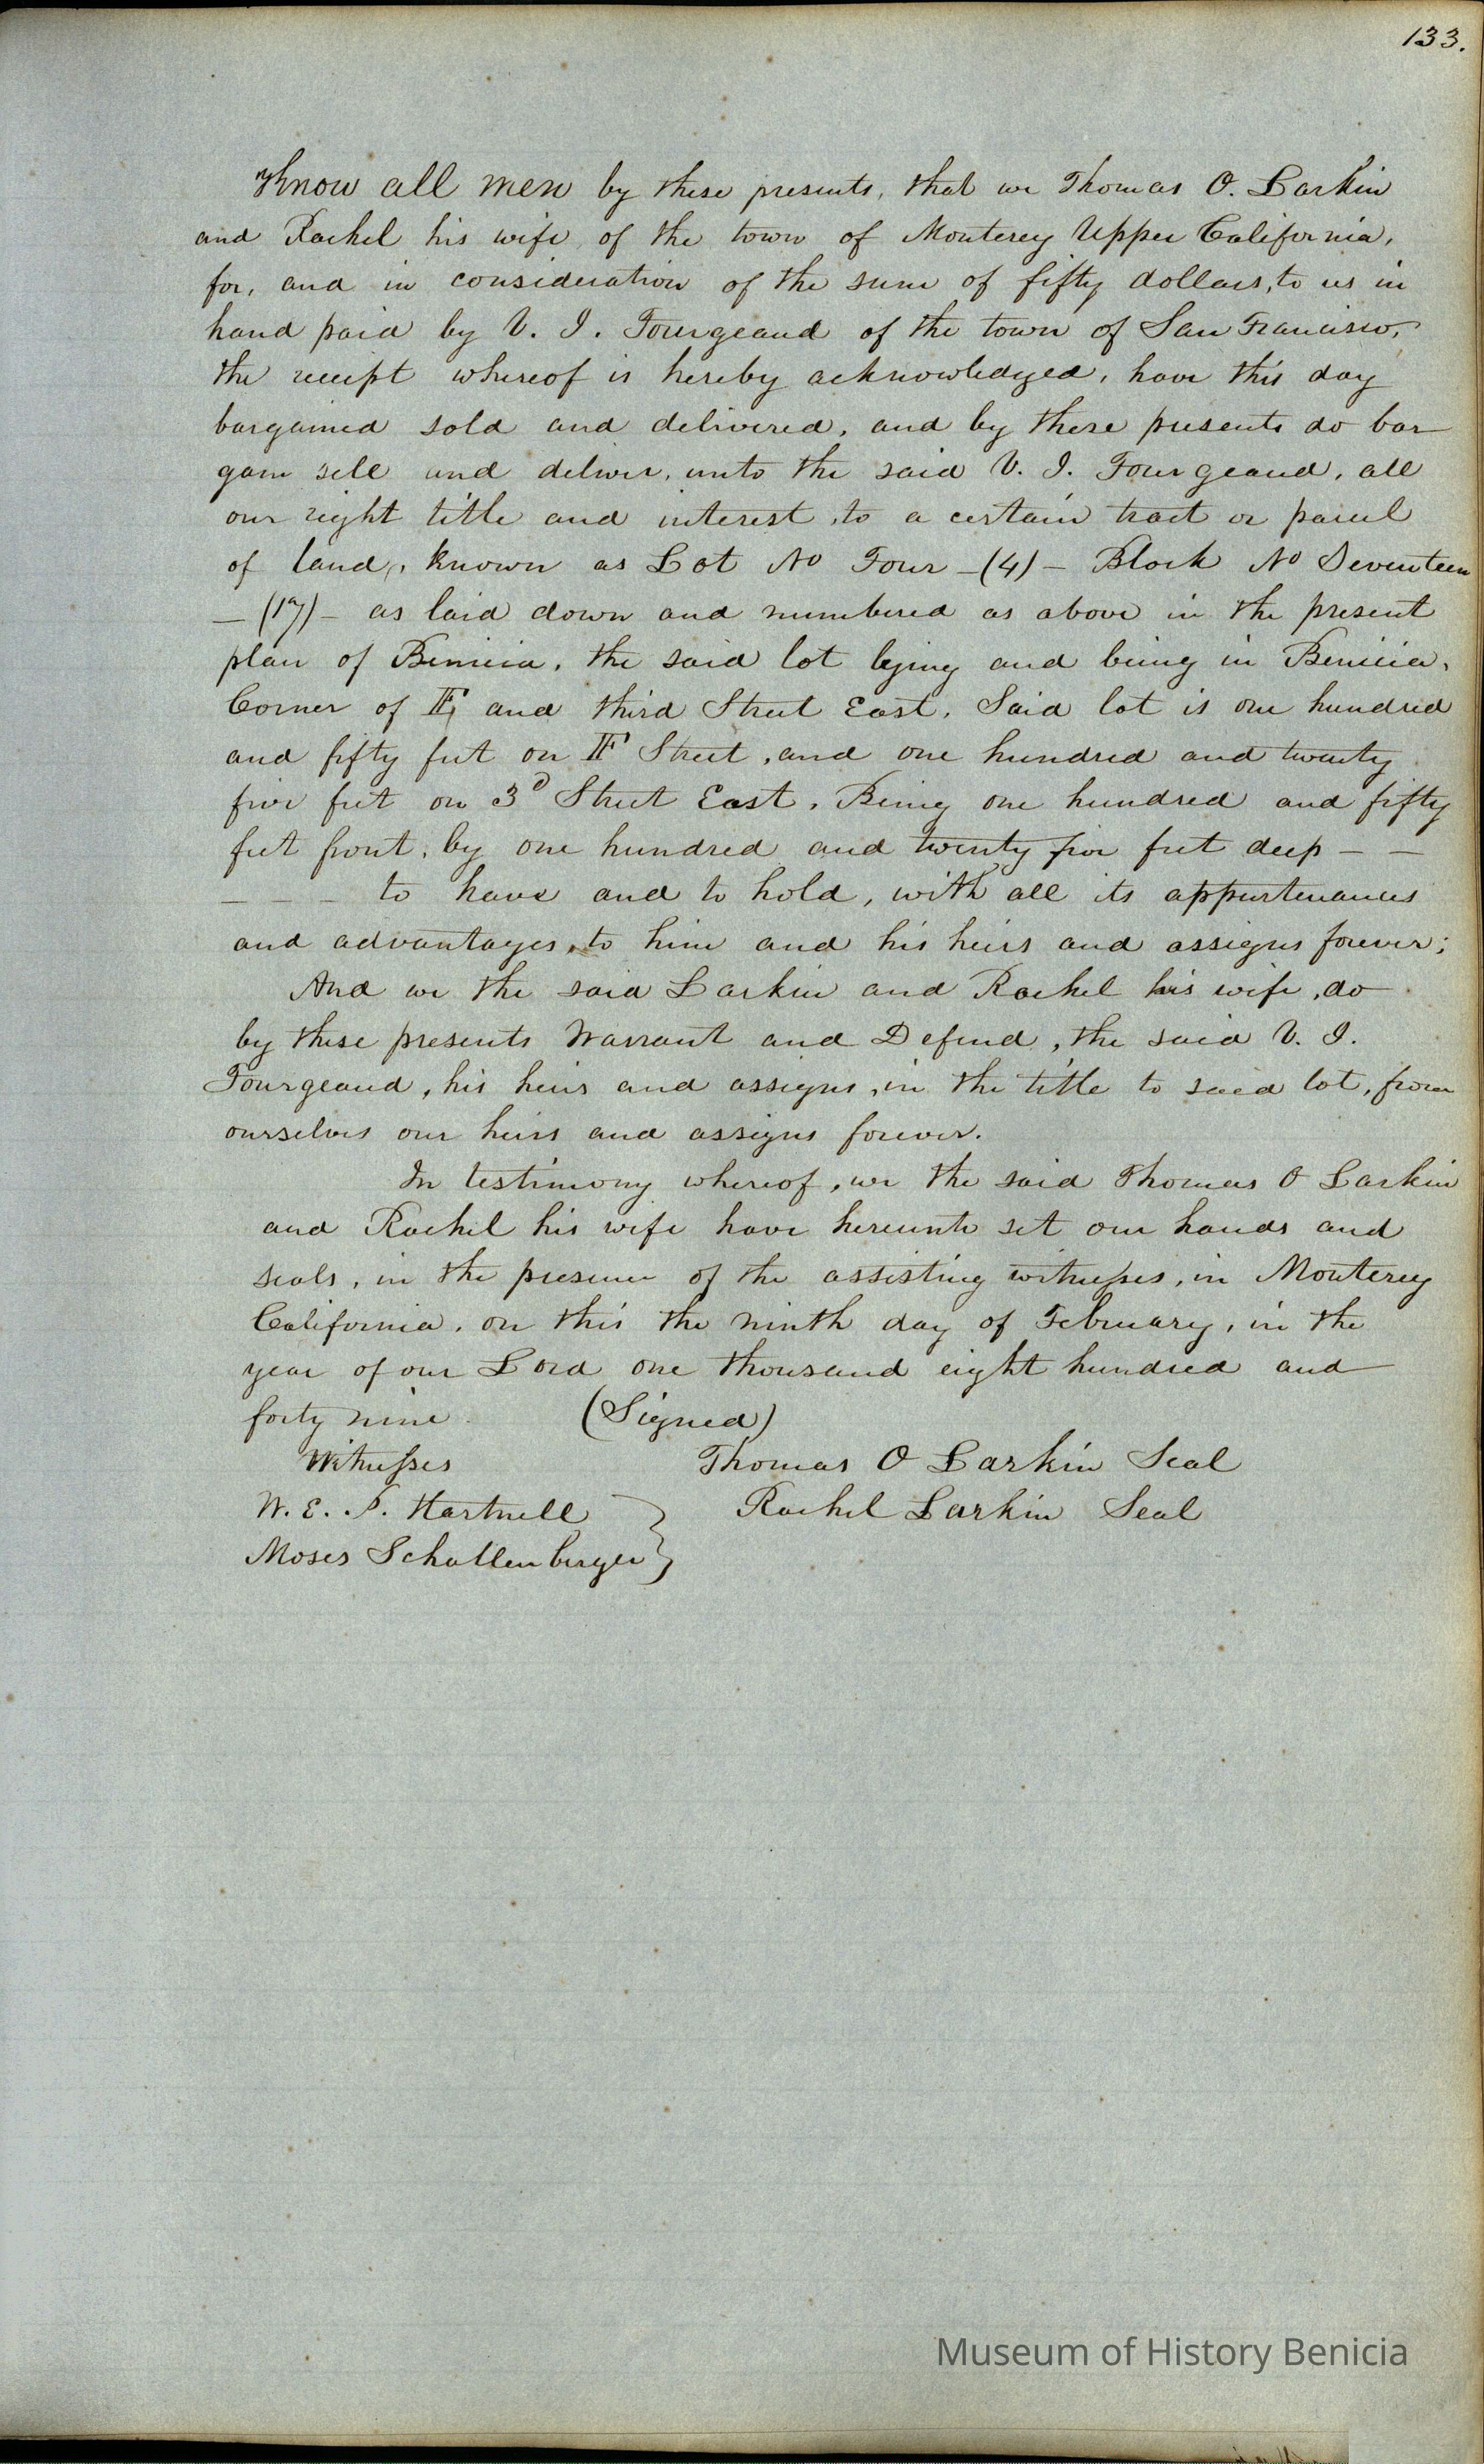 133.
Know all men by these presents, that we Thomas O. Larkin
and Rachel his wife, of the town of Monterey Upper California,
for, and in consideration of the sum of fifty dollars, to us in
hand paid by V. J. Fourgeaud of the town of San Francisco,
the receipt whereof is hereby acknowledged, have this day
bargained sold and delivered, and by these presents do bar
gain sell and deliver, unto the said V. J. Fourgeaud, all
our right title and interest, to a certain tract or parcel
of land, known as Lot No Four -(4)- Block No Seventeen
-(17)- as laid down and numbered as above in the present
plan of Benicia, the said lot lying and being in Benicia,
Corner of F, and third Street East. Said lot is one hundred
and fifty feet on F Street, and one hundred and twenty
five feet on 3d Street East. Being one hundred and fifty
feet front, by one hundred and twenty five feet deep - -
- - - to have and to hold, with all its appurtenances
and advantages, to him and his heirs and assigns forever;
And we the said Larkin and Rachel his wife, do
by these presents Warrant and Defend, the said V. J.
Fourgeaud, his heirs and assigns, in the title to said lot, from
ourselves our heirs and assigns forever.
In testimony whereof, we the said Thomas O Larkin
and Rachel his wife have hereunto set our hands and
seals, in the presence of the assisting witnesses, in Monterey
California, on this the ninth day of February, in the
year of our Lord one thousand eight hundred and
forty nine. (Signed)
Witnesses Thomas O Larkin Seal
W. E. P. Hartnell Rachel Larkin Seal
Moses Schallenberger
Museum of History Benicia